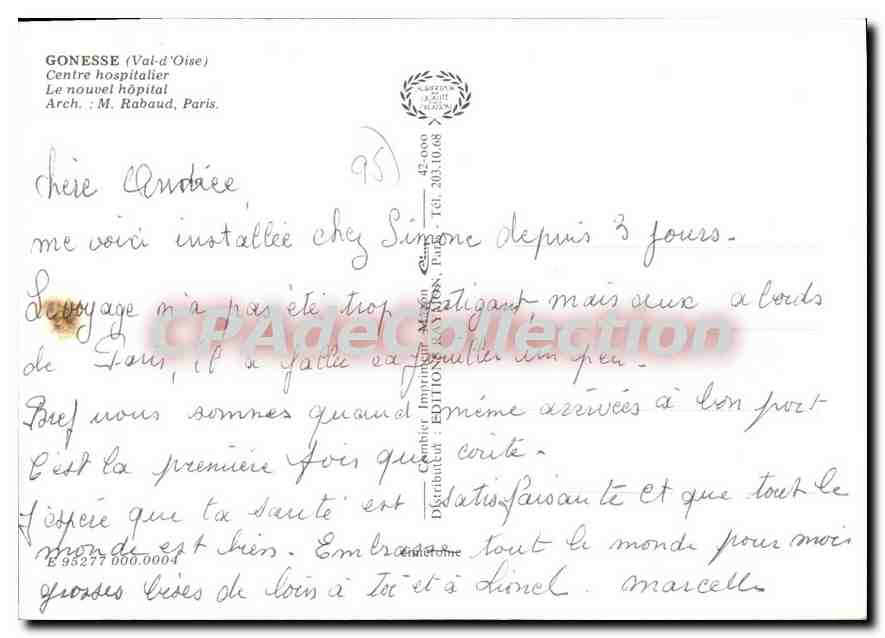 GONESSE (Val-d'Oise)
Centre hospitalier
Le nouvel hôpital
Arch. : M. Rabaud, Paris.
95)
chère Andrée,
me voici installée chez Simone depuis 3 jours.
Le voyage n'a pas été trop fatigant, mais aux abords
de Paris, il a fallu cafouiller un peu.
Bref nous sommes quand même arrivées à bon port
C'est la première fois qui coûte.
J'espère que ta santé est satisfaisante et que tout le
monde est bien. Embrasse tout le monde pour moi
grosses bises de loin à toi et à Lionel. Marcelle
E 95277 000.0004
Combier Imprimeur Mâcon 42-000
Distributeur : EDITIONS RAYMON, Paris - Tél. 203.10.68
CPAdeCollection